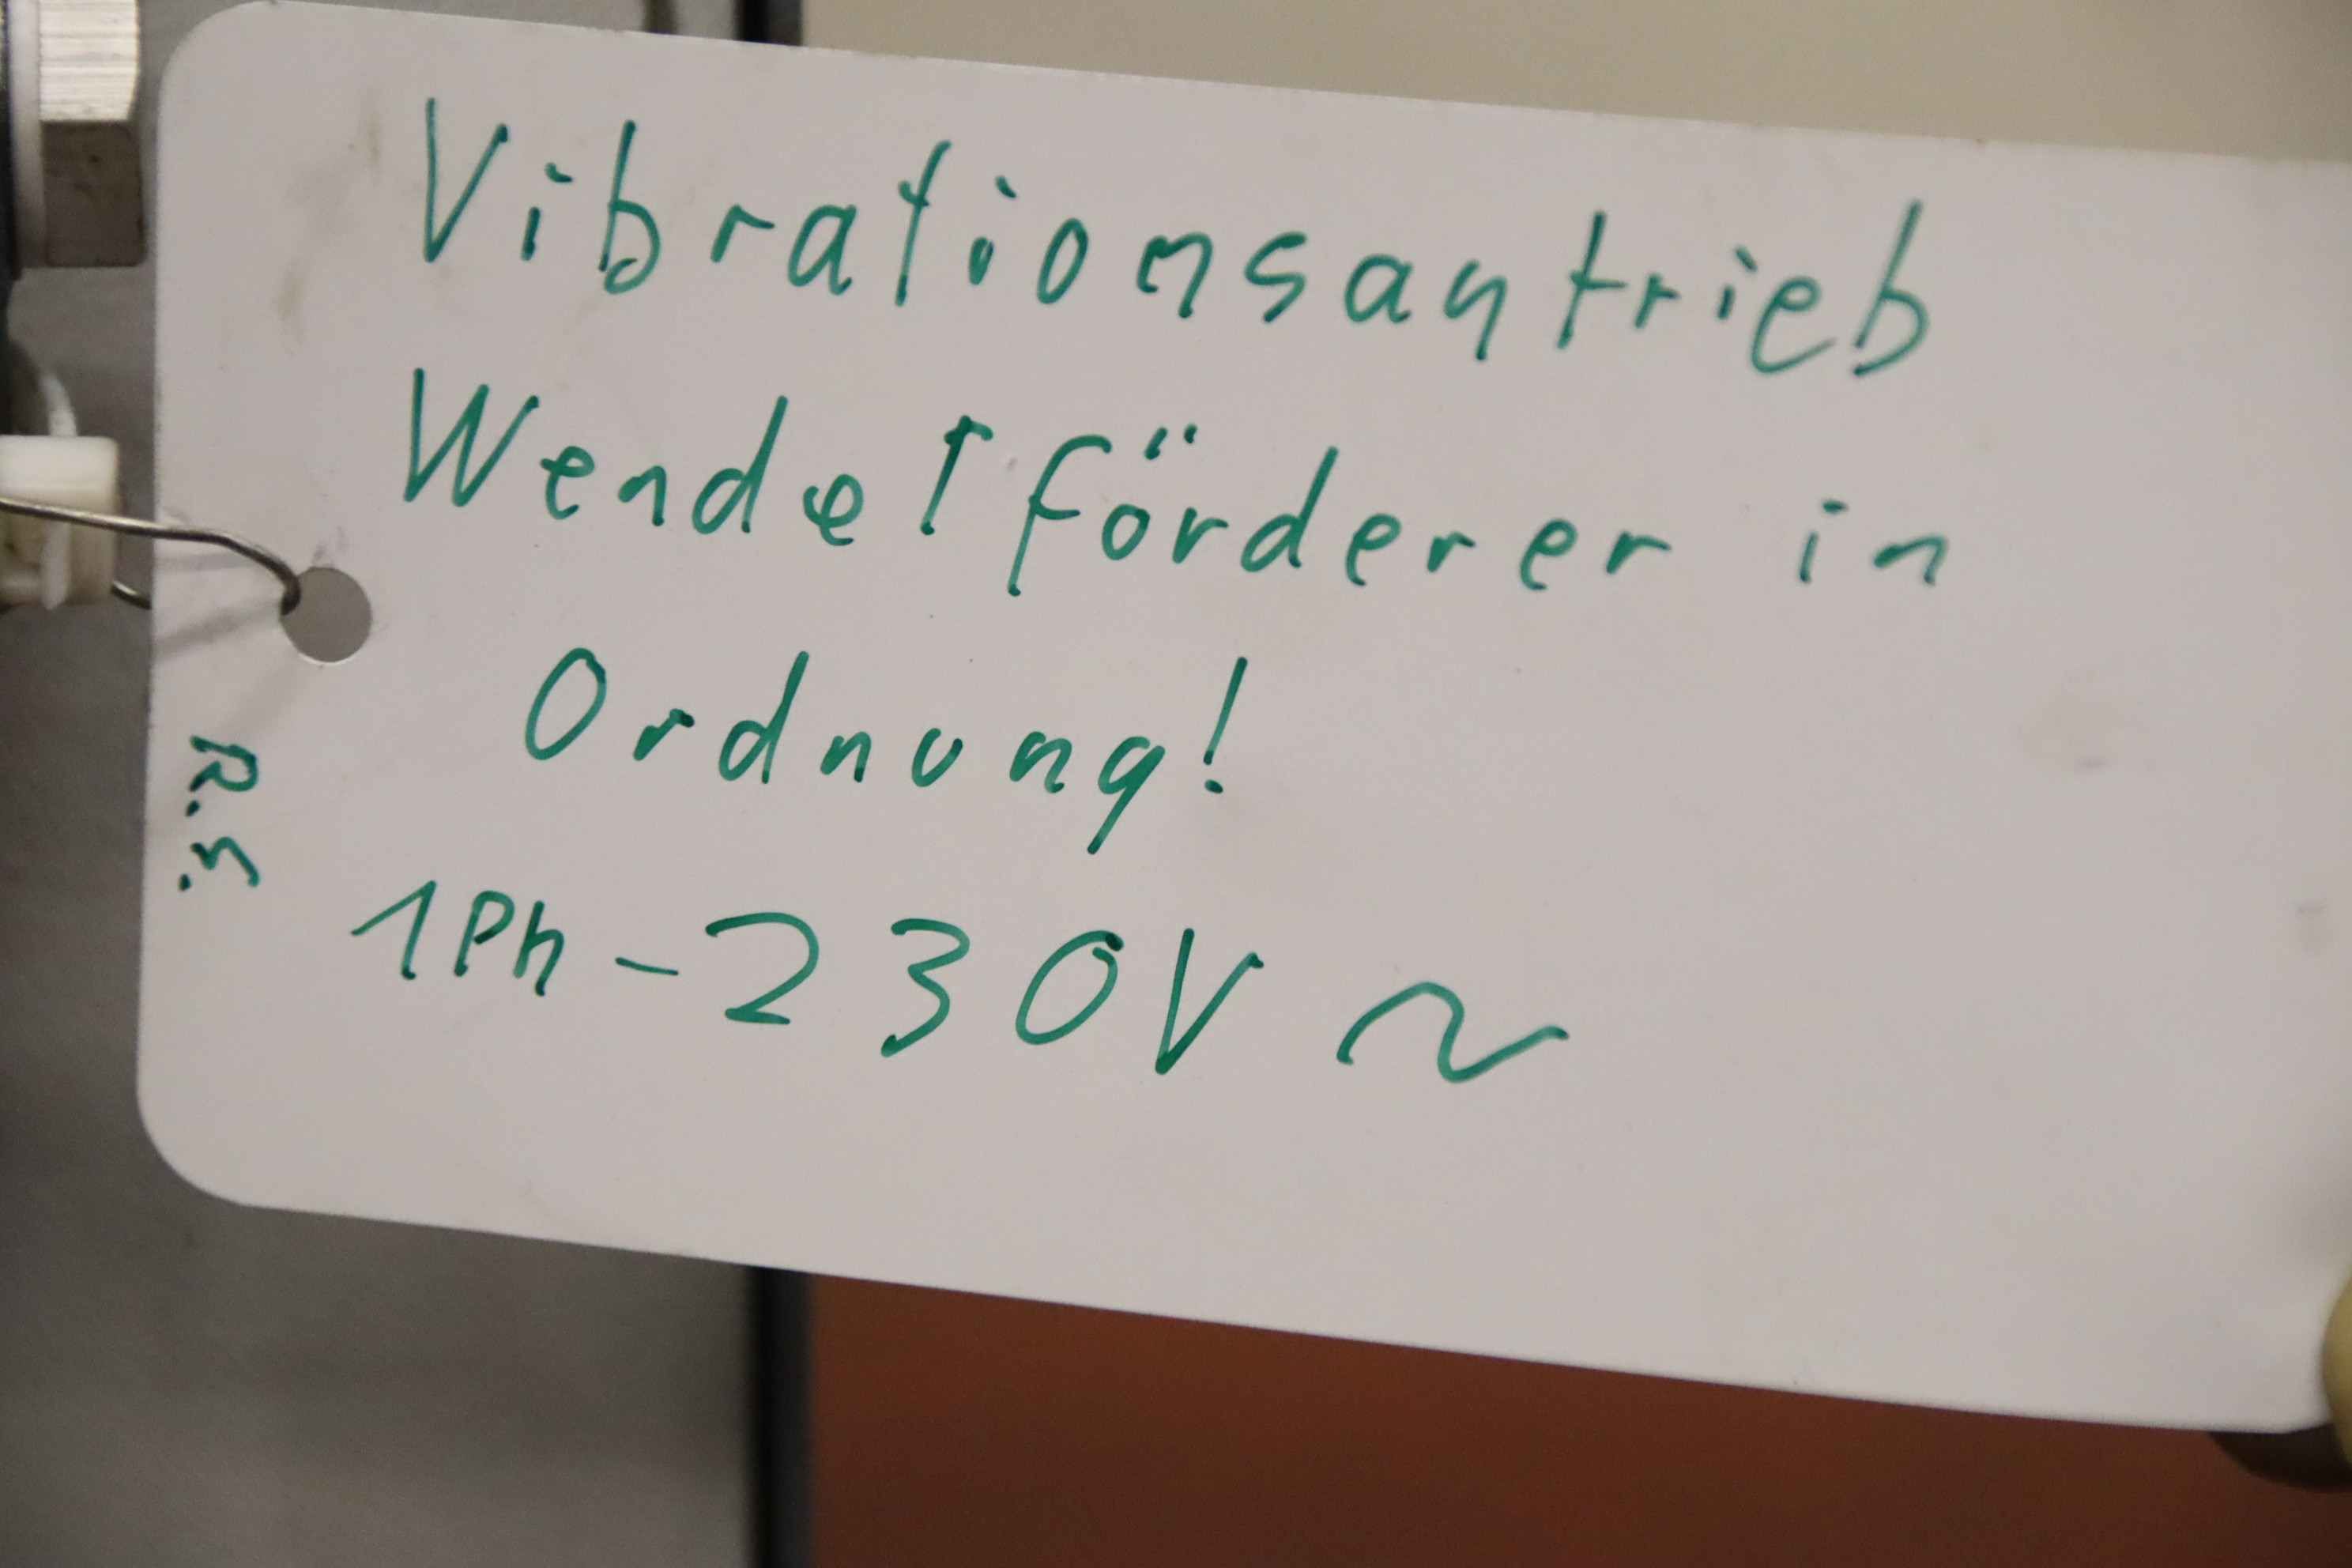 Vibrationsantrieb
Wendelförderer in
Ordnung!
1Ph-230V ~
R.S.